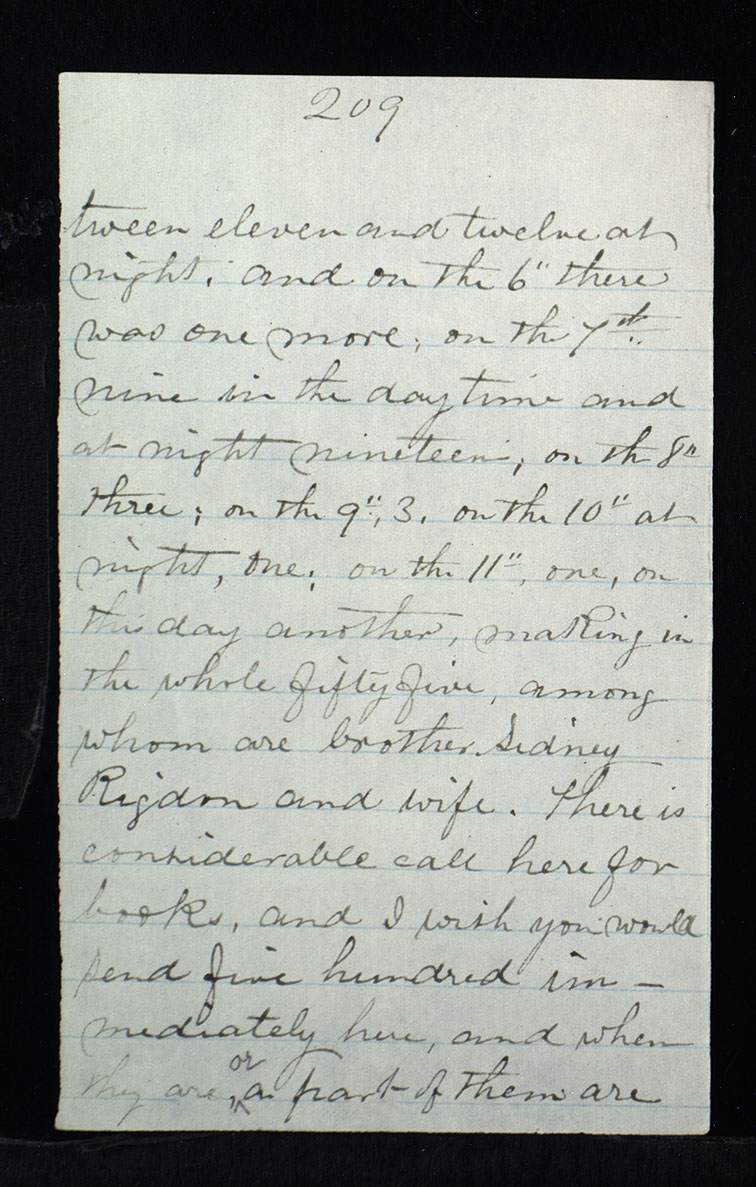 209
tween eleven and twelve at
night; and on the 6" there
was one more; on the 7th.
nine in the daytime and
at night nineteen; on th 8"
three; on the 9", 3. on the 10" at
night, one; on the 11", one, on
this day another, making in
the whole fifty five, among
whom are brother Sidney
Rigdon and wife. There is
considerable call here for
books, and I wish you would
send five hundred im-
mediately here, and when
they are, or a part of them are